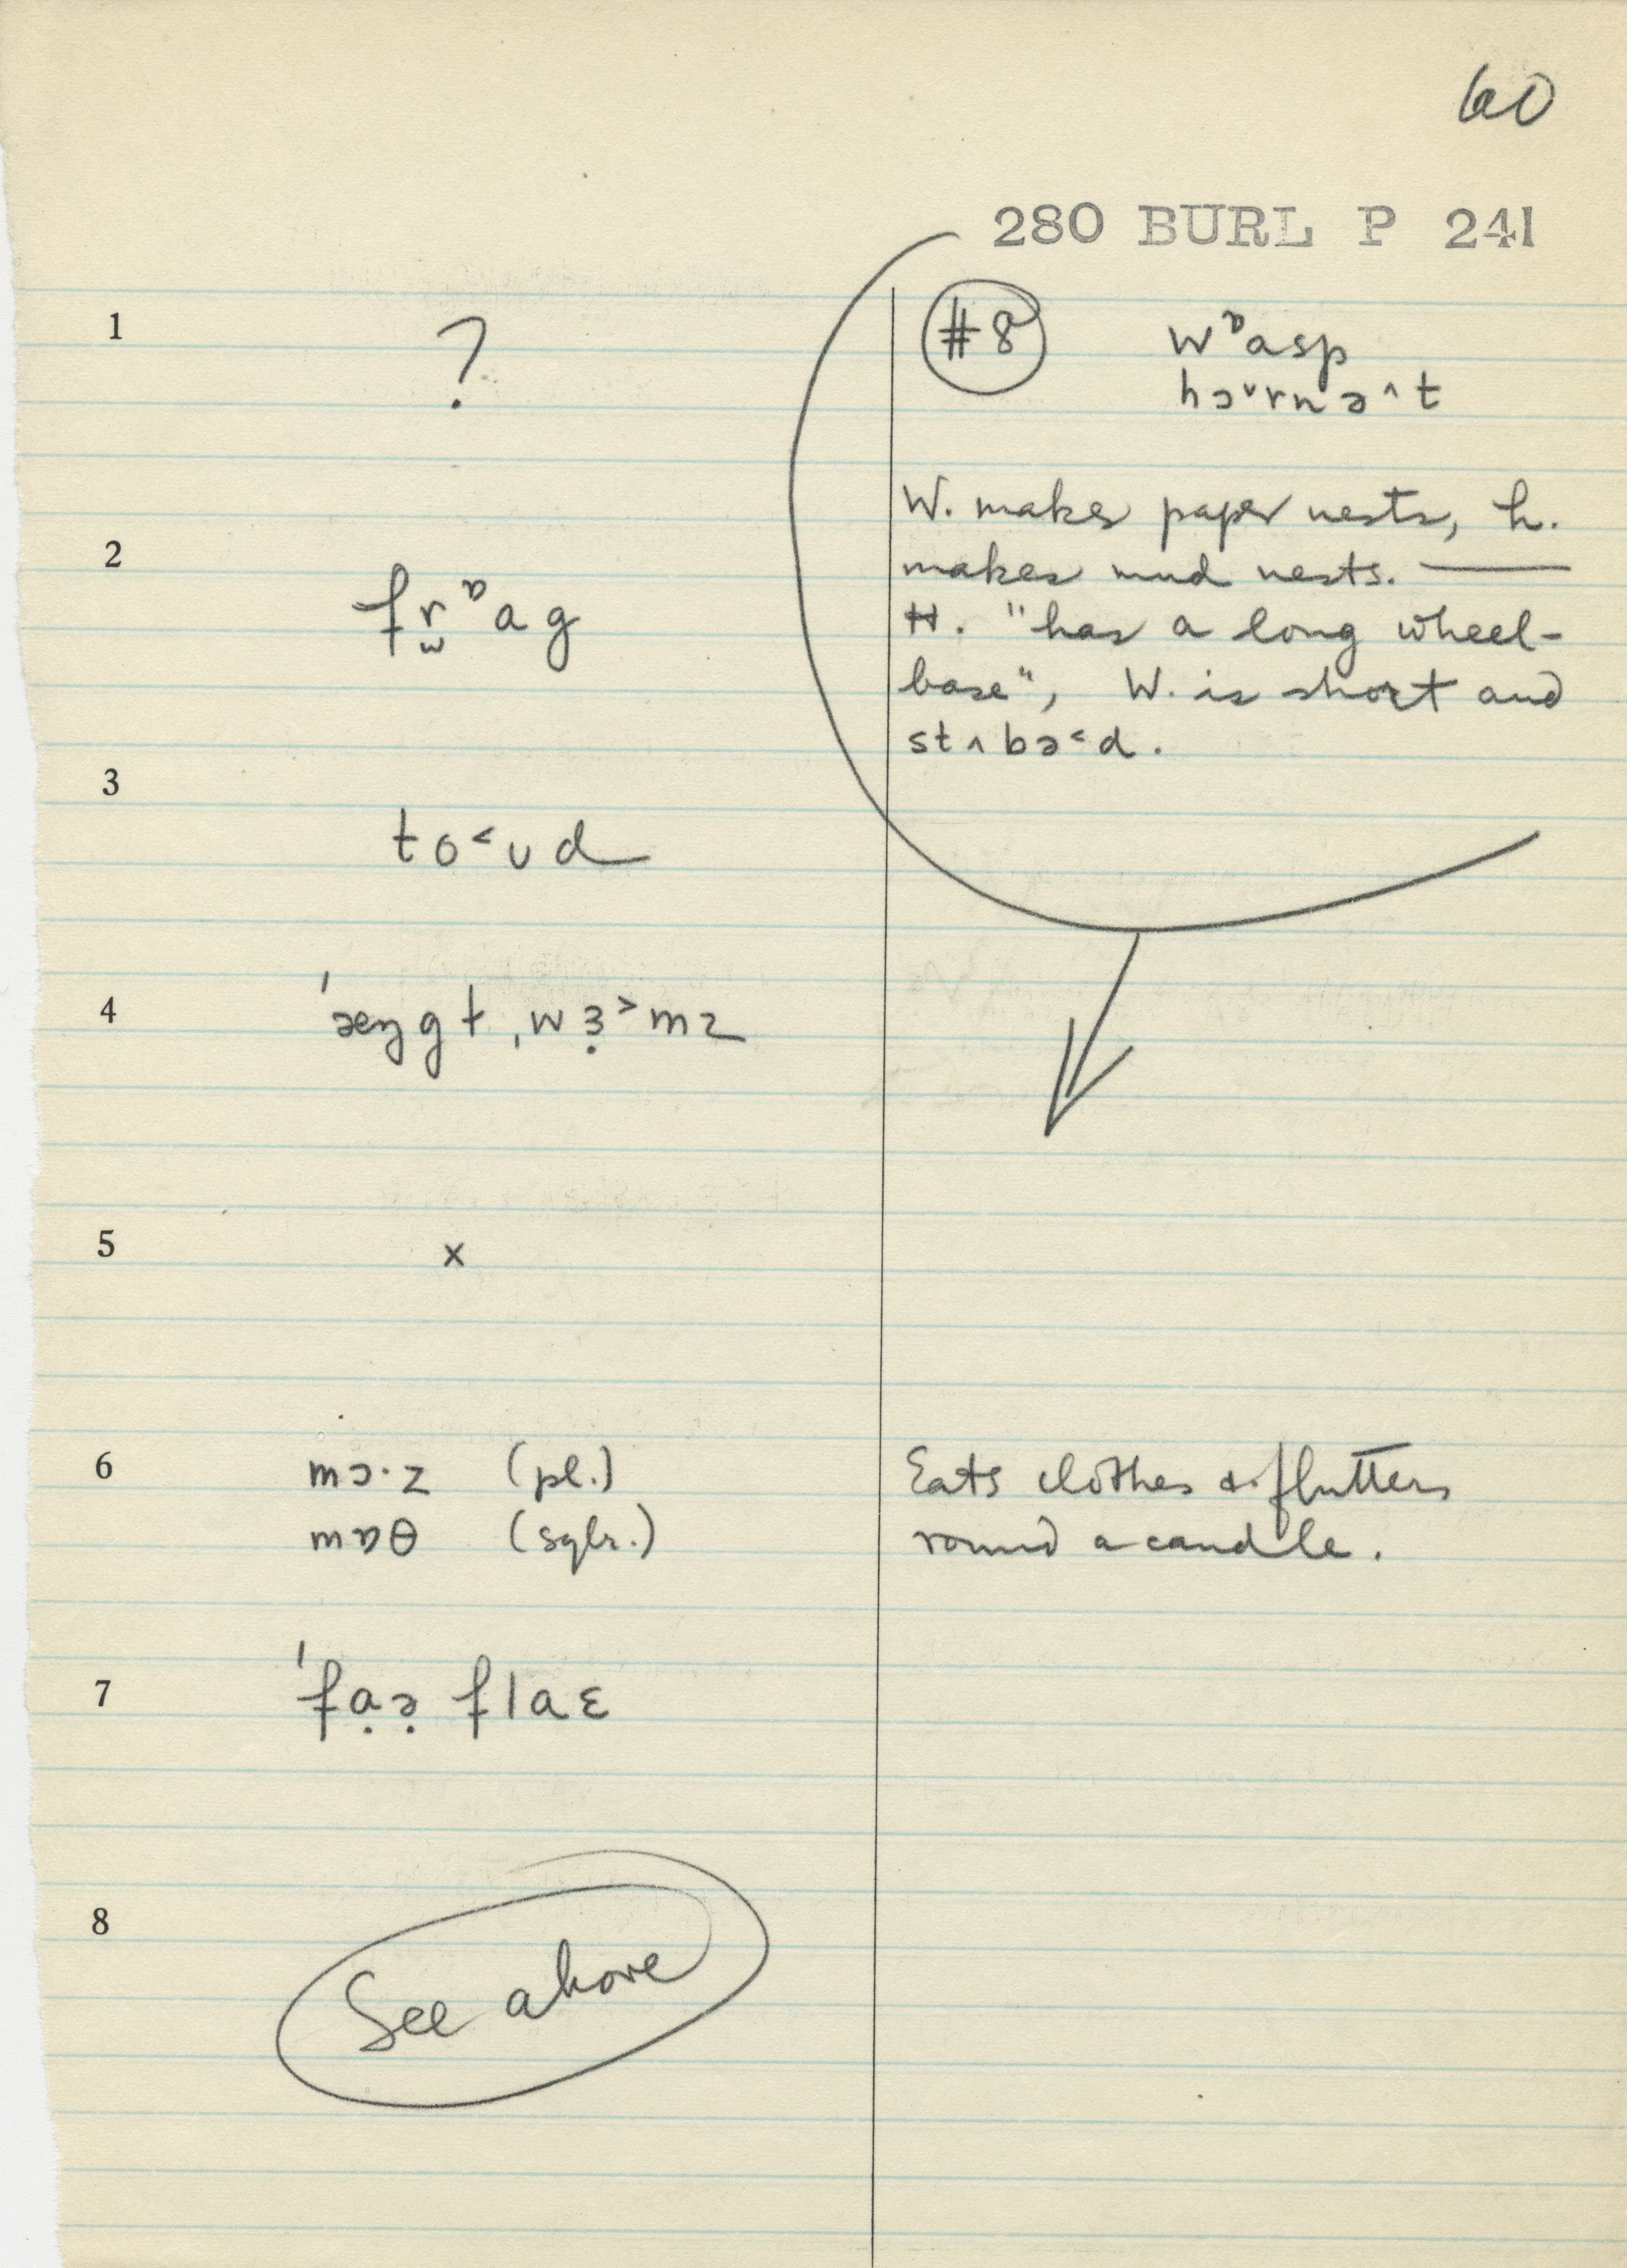 60
280 BURL P 241
1 ?
#8 wᶛasp
hɔ˅rnə^t
W. makes paper nests, h.
makes mud nests. ——
H. "has a long wheel-
base", W. is short and
stʌbə˂d.
2 fr̫ᶛag
3 to˂ʊd
4 ˈæŋgɫˌwɜ̣˃mz
5 x
6 mɔ·z (pl.)
mɒθ (sglr.)
Eats clothes & flutters
round a candle.
7 ˈfạə̣ flaɛ
8 See above